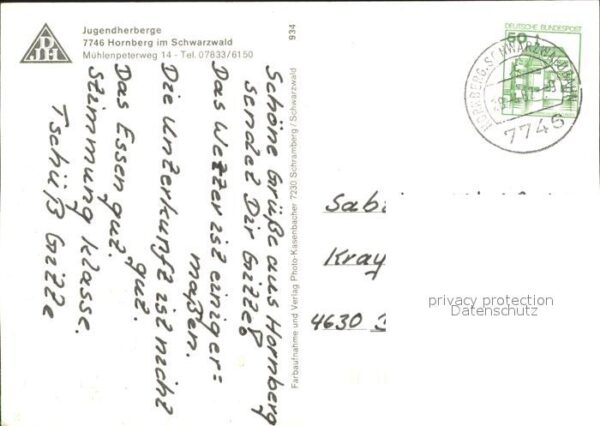 Jugendherberge
7746 Hornberg im Schwarzwald
Mühlenpeterweg 14 - Tel. 07833/6150
DJH
934
Schöne Grüße aus Hornberg
sendet Dir Gitte.
Das Wetter ist einiger=
maßen.
Die Unterkunft ist nicht
gut.
Das Essen gut.
Stimmung klasse.
Tschüß Gitte
Farbaufnahme und Verlag Photo-Kasenbacher 7230 Schramberg / Schwarzwald
DEUTSCHE BUNDESPOST
50
HORNBERG, SCHWARZWALDBAHN
7746
Sab
Kray
4630
privacy protection
Datenschutz